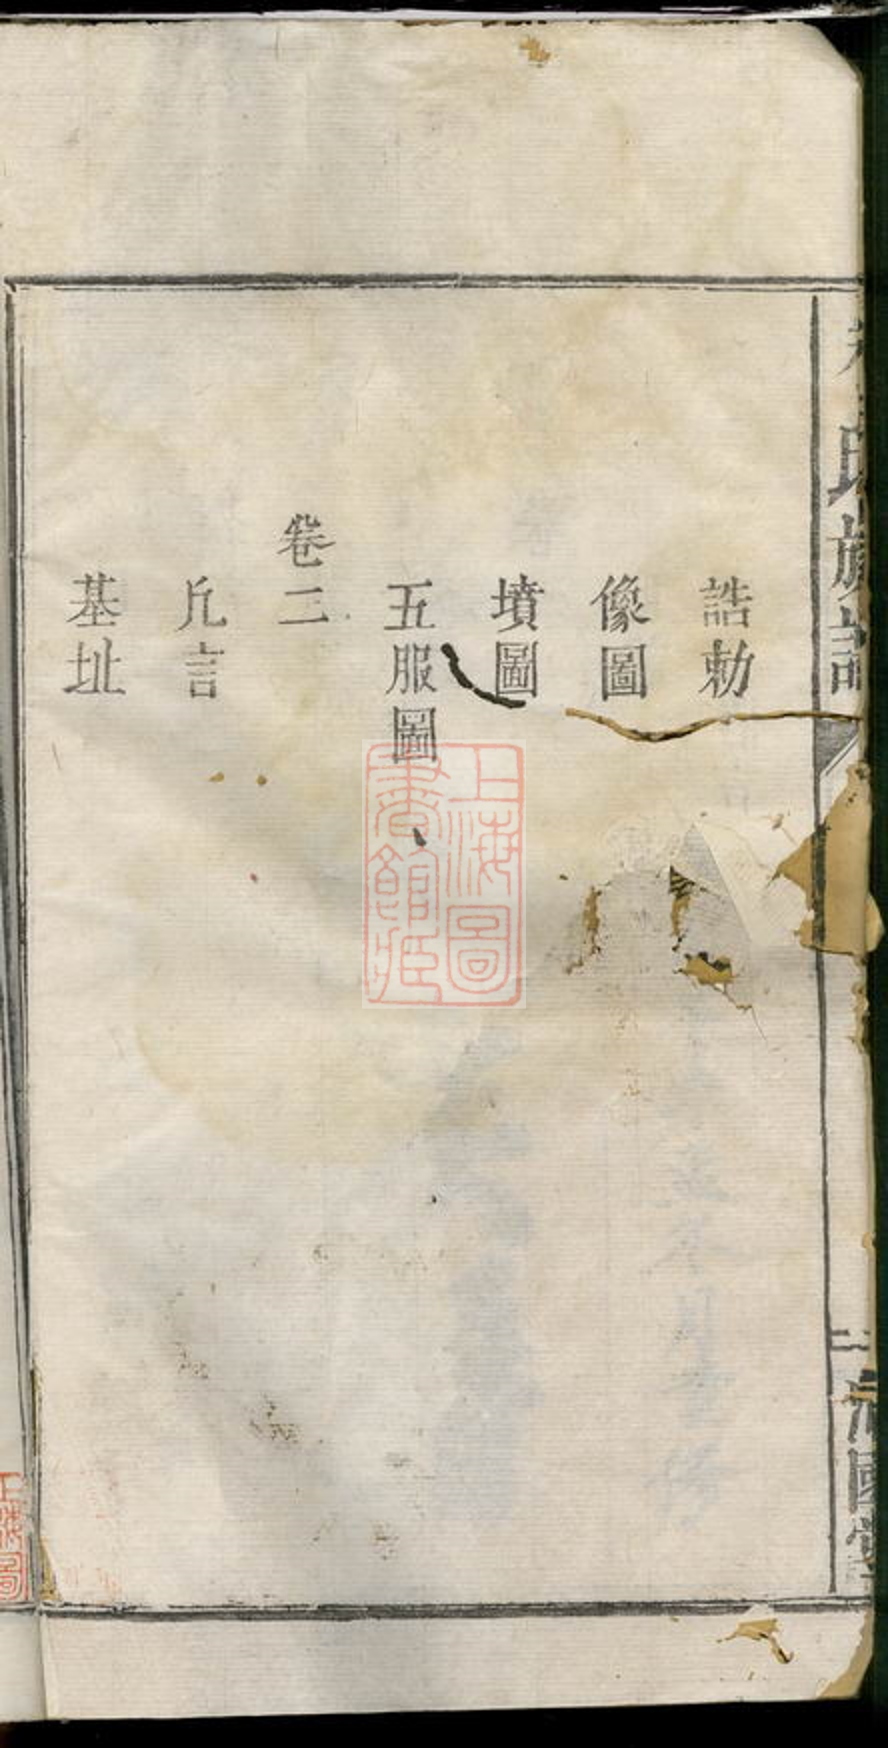 誥勅
像圖
墳圖
五服圖
卷二
凡言
基址
氏族譜
二
國堂
上海圖書館藏
上海圖